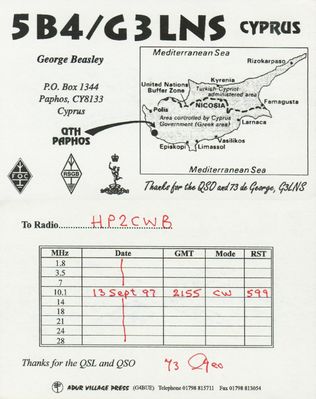 5B4/G3LNS CYPRUS
George Beasley
P.O. Box 1344
Paphos, CY8133
Cyprus
QTH
PAPHOS
Mediterranean Sea
Rizokarpaso
United Nations
Buffer Zone
Kyrenia
Turkish-Cypriot
administered area
NICOSIA
Polis
Famagusta
Area controlled by Cyprus
Government (Greek area)
Larnaca
Vasilikos
Episkopi
Limassol
Mediterranean Sea
RSGB
Thanks for the QSO and 73 de George, G3LNS
To Radio HP2CWB
MHz Date GMT Mode RST
1.8
3.5
7
10.1 13 Sept 97 2155 CW 599
14
18
21
24
28
Thanks for the QSL and QSO 73 Geo
ADUR VILLAGE PRESS (G4BUE) Telephone 01798 815711 Fax 01798 813054